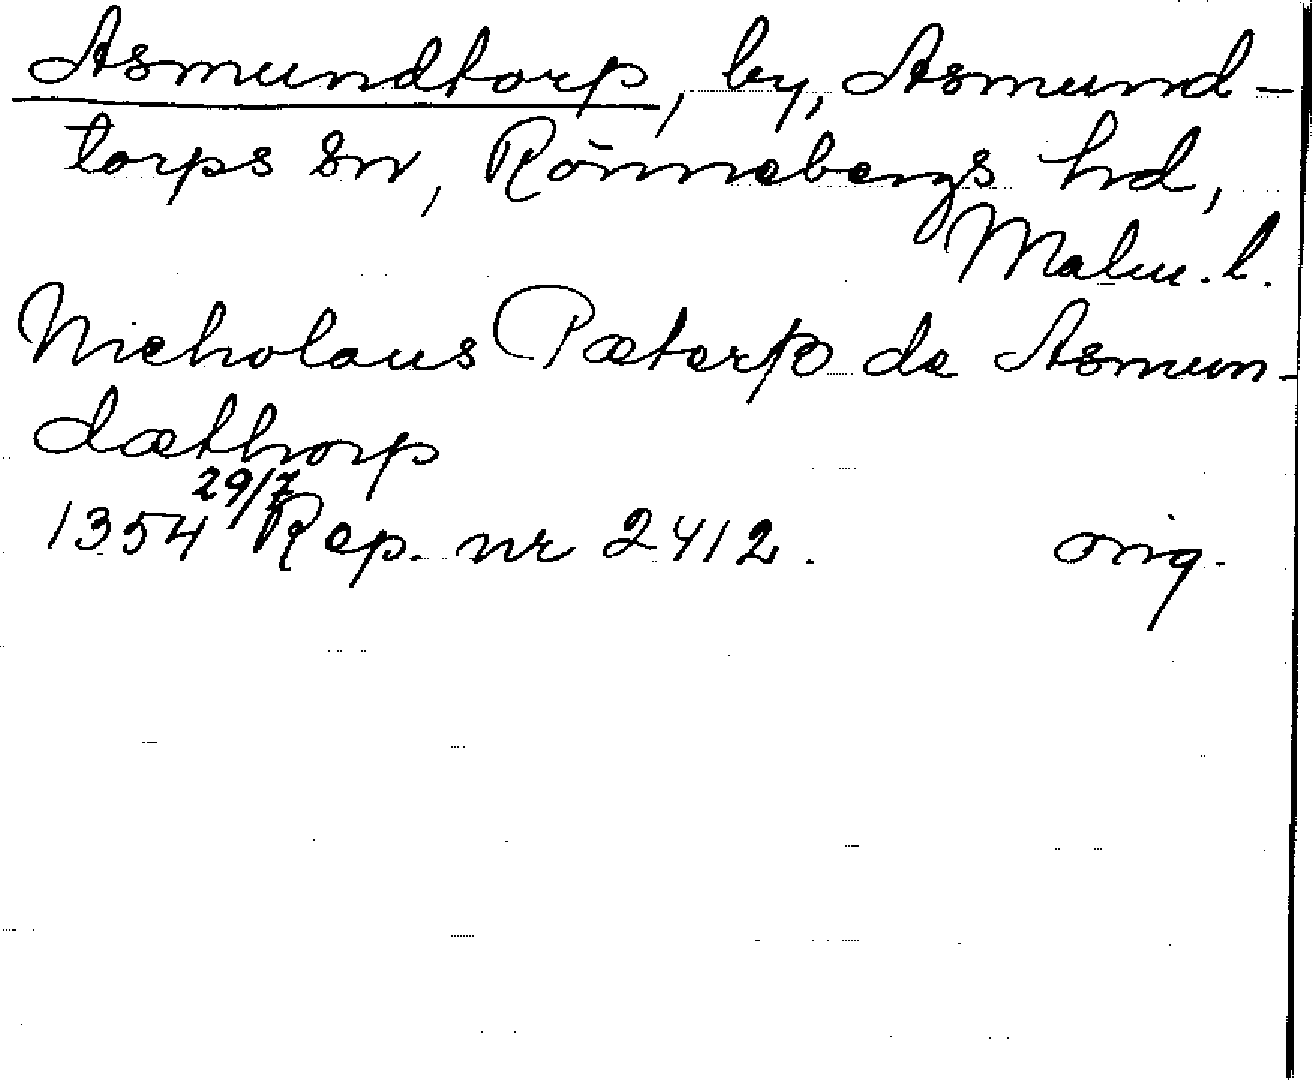 Asmundtorp, by, Asmund-
torps sn, Rönnebergs hd,
Malm. l.
Nicholaus Pæterß de Asmun-
dæthorp
1354 29/7 Rep. nr 2412. orig.